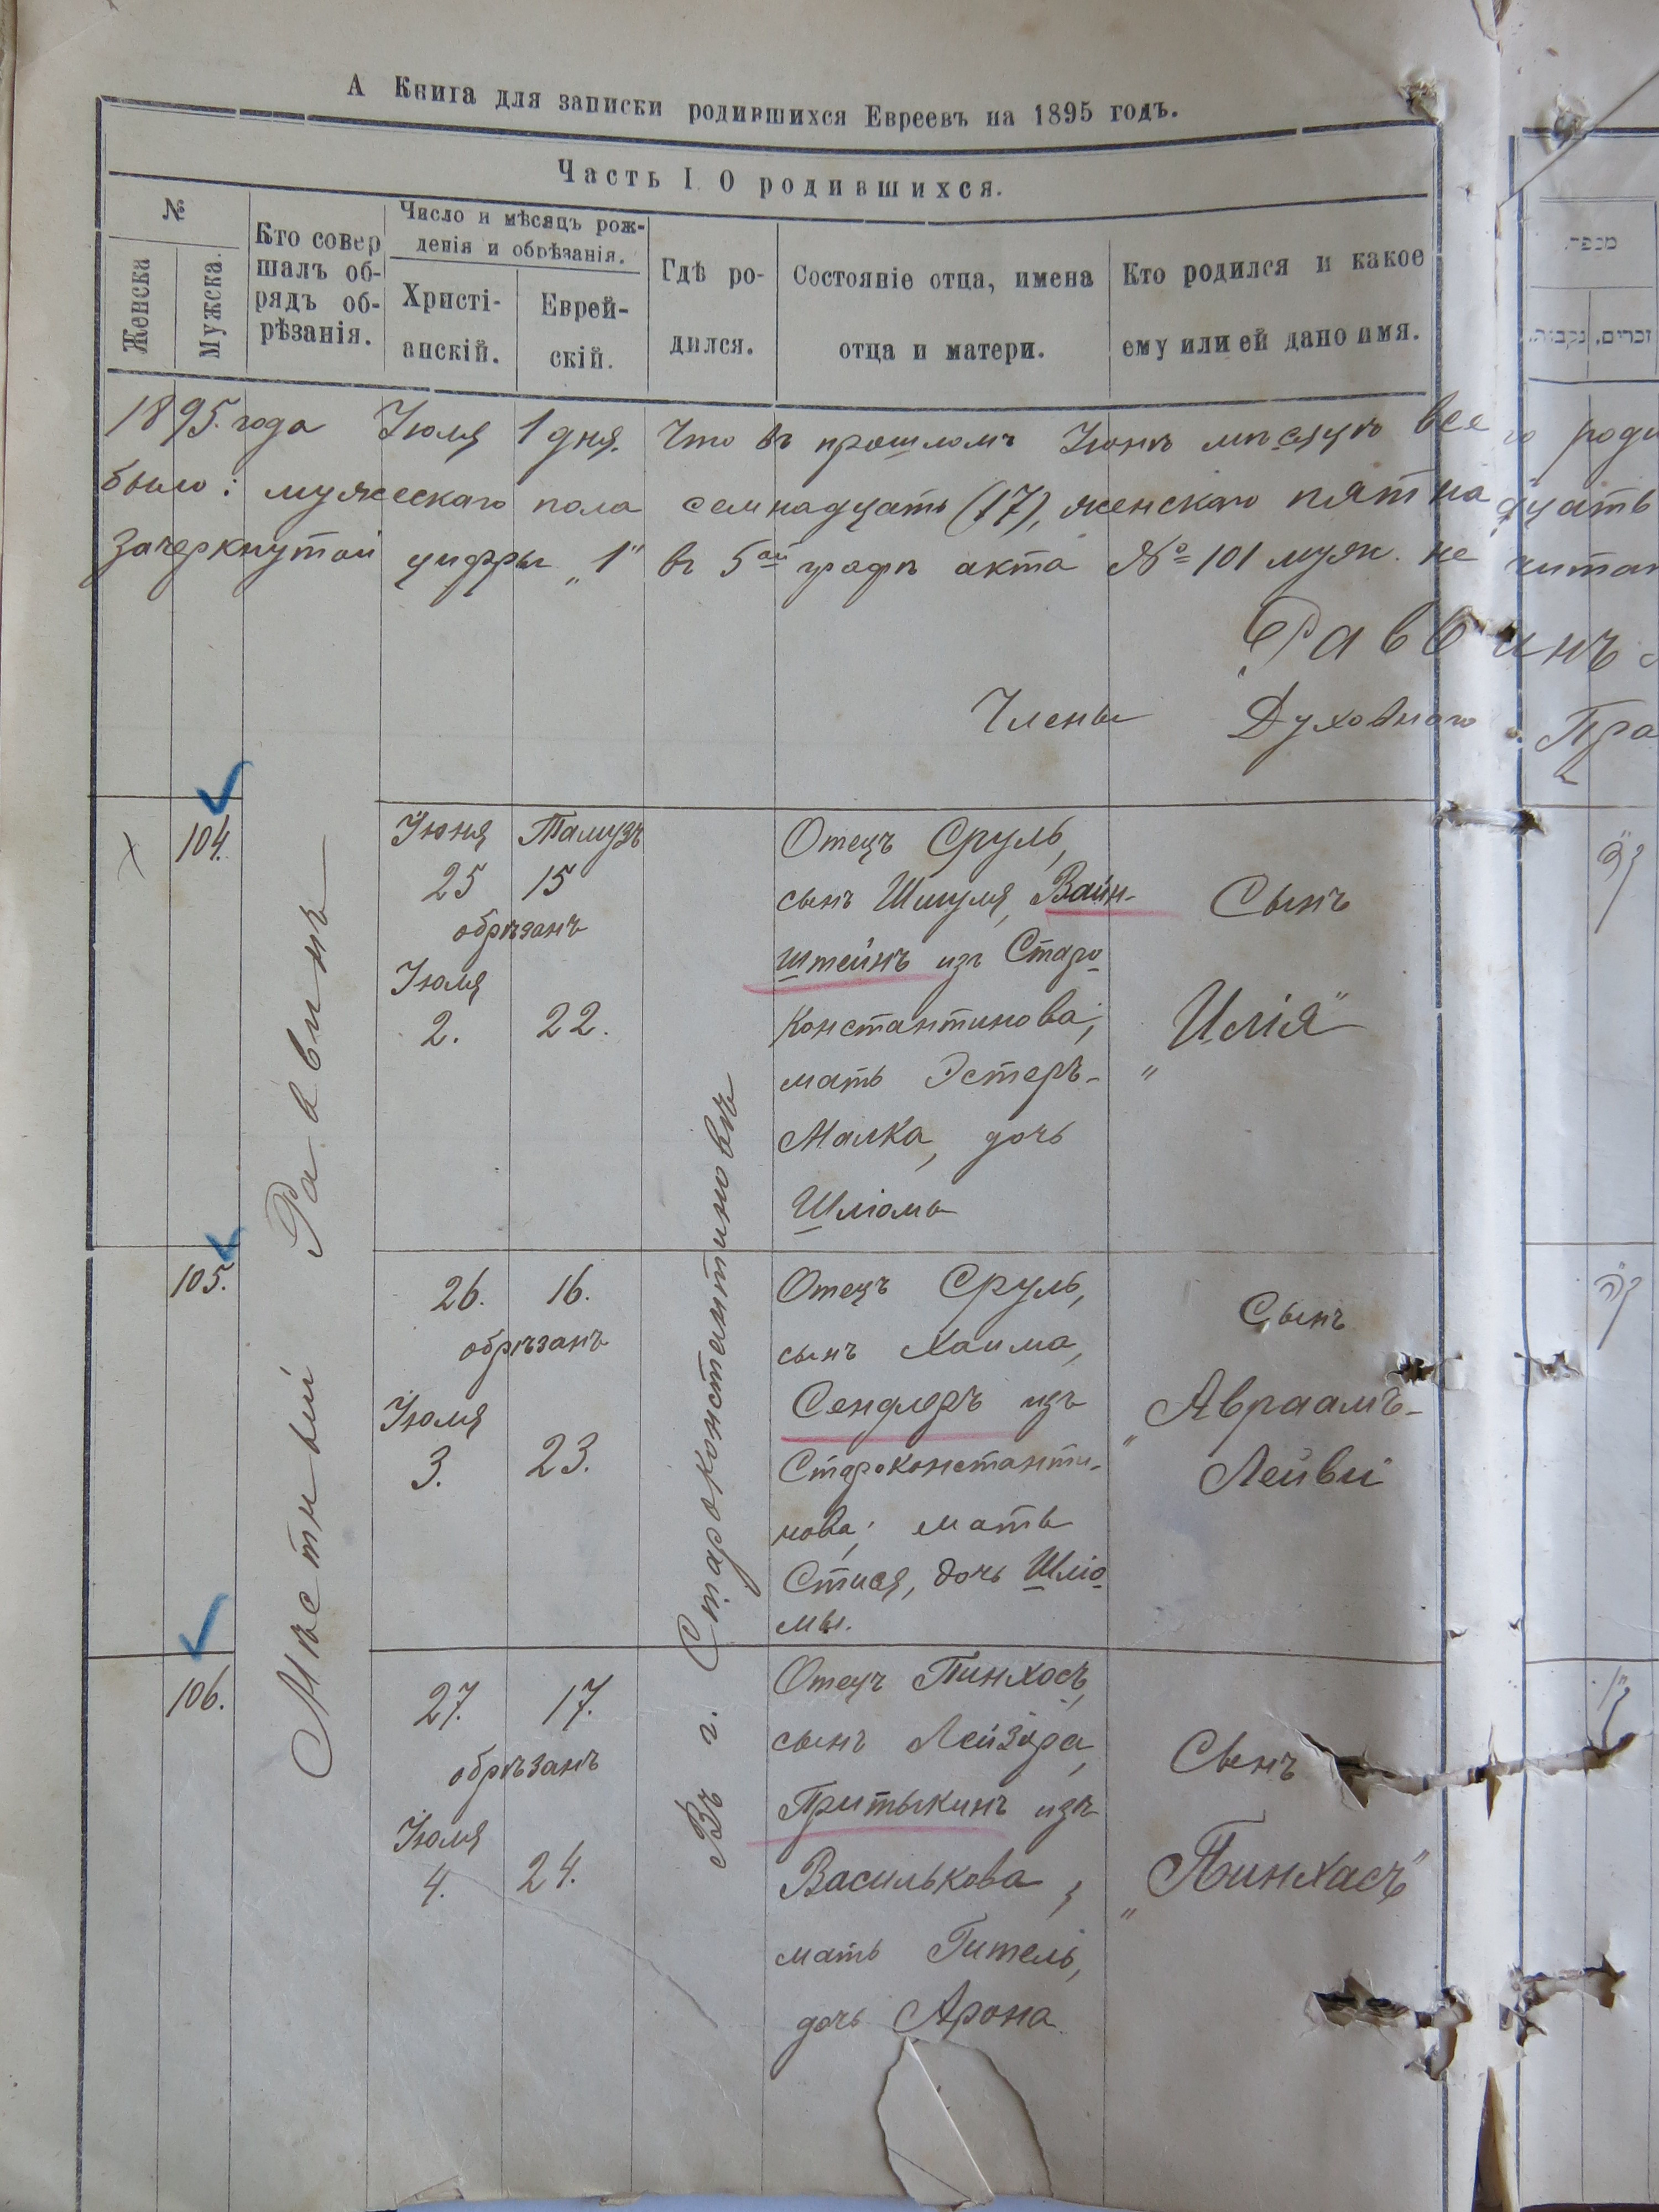 А Книга для записки родившихся Евреевъ на 1895 годъ.
Часть I. О родившихся.
№
Женска
Мужска.
Кто совер
шалъ об-
рядъ об-
рѣзанія.
Число и мѣсяцъ рож-
денія и обрѣзанія.
Христі-
анскій.
Еврей-
скій.
Гдѣ ро-
дился.
Состояніе отца, имена
отца и матери.
Кто родился и какое
ему или ей дано имя.
מספר.
זכרים.
נקבות.
1895 года Іюля 1 дня. Что въ прошломъ Іюнѣ мѣсяцѣ все го роди
было: мужескаго пола семнадцать (17), женскаго пятнадцать
Зачеркнутой цифры „1" въ 5ой графѣ акта № 101 муж. не читат
Раввинъ
Члены Духовнаго Пра
Мѣстный Раввинъ
Въ г. Староконстантиновѣ
104.
Іюня Тамузъ
25 15
обрѣзанъ
Іюля
2. 22.
Отецъ Сруль,
сынъ Шмуля, Вайн-
штейнъ изъ Старо
Константинова;
мать Эстеръ-
Малка, дочь
Шліомы
Сынъ
„Илія"
קד
105.
26. 16.
обрѣзанъ
Іюля
3. 23.
Отецъ Сруль,
сынъ Хаима,
Сендлеръ изъ
Староконстанти-
нова; мать
Стися, дочь Шліо
мы.
Сынъ
„Авраамъ-
Лейви"
קה
106.
27. 17.
обрѣзанъ
Іюля
4. 24.
Отецъ Пинхосъ,
сынъ Лейзора,
Притыкинъ изъ
Василькова;
мать Гитель,
дочь Арона
Сынъ
„Пинхасъ"
קו